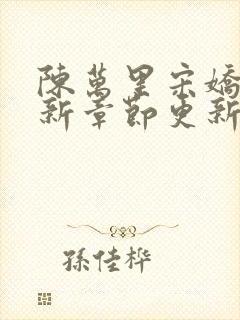 陳萬里宋嬌
新章節更新
孫佳桦